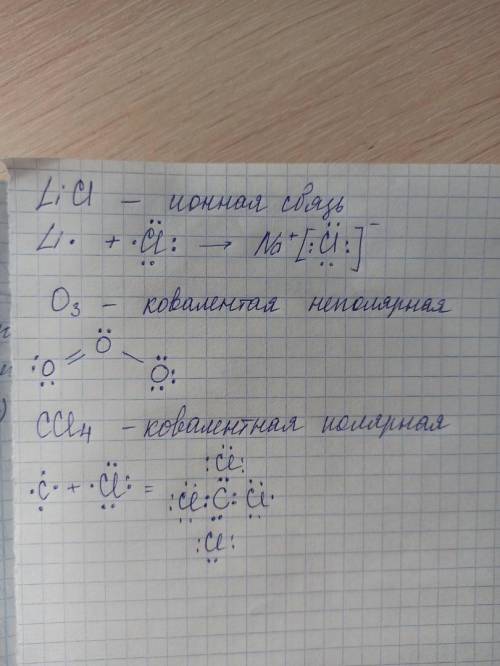 LiCl – ионная связь
Li· + ·Cl: → Na⁺[:Cl:]⁻
O₃ – ковалентая неполярная
O = O – O
CCl₄ – ковалентная полярная
:Cl:
·C· + ·Cl: = :Cl:C:Cl:
:Cl: